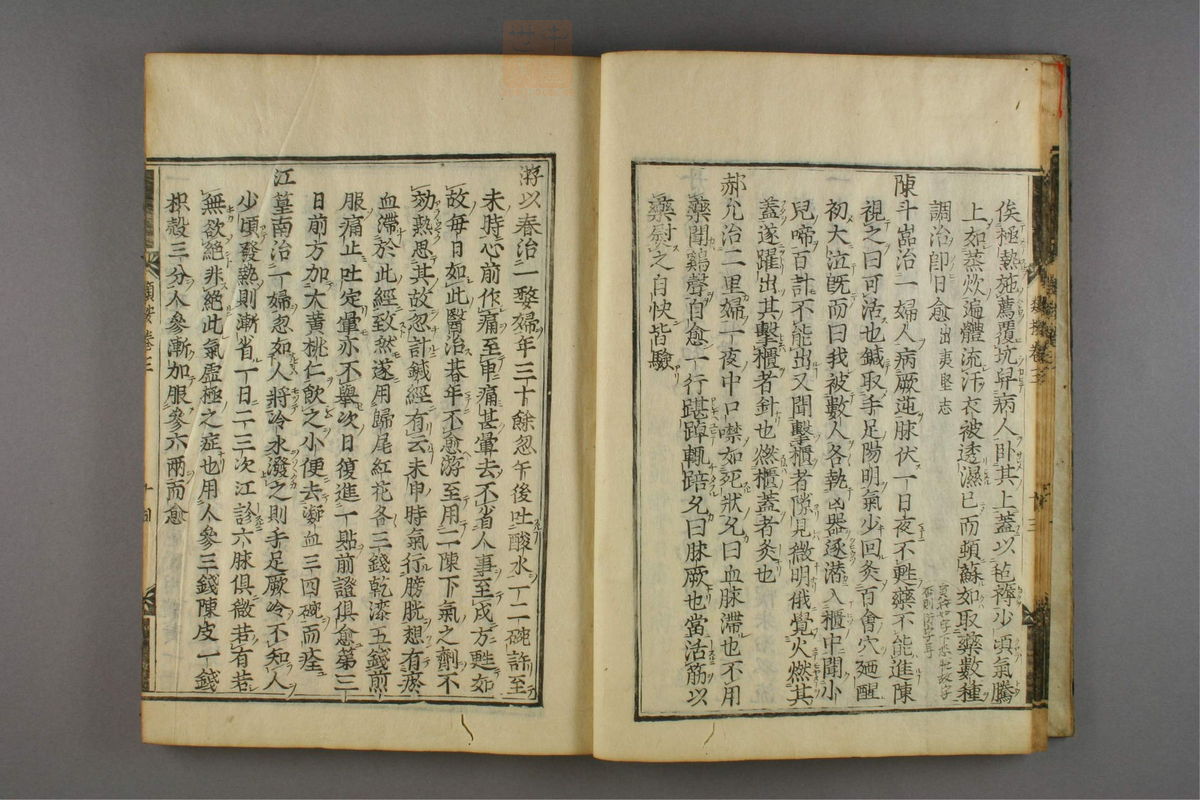 俟極熱施薦覆坑舁病人卧其上蓋以毡褥少頃氣騰
上如蒸炊遍體流汗衣被透濕已而頓蘇如取藥數種
調治卽日愈 出夷堅志
陳斗嵓治一婦人病厥逆脉伏一日夜不甦藥不能進陳
視之曰可活也鍼取手足陽明氣少回灸百會穴廼醒
初大泣旣而曰我被數人各執凶器逐潜入櫃中聞小
兒啼百計不能出又聞擊櫃者隙見微明俄覺火燃其
蓋遂躍出其擊櫃者針也燃櫃蓋者灸也
郝允治二里婦一夜中口噤如死狀允曰血脉滯也不用
藥聞鷄聲自愈一行踸踔輒踣允曰脉厥也當活筋以
藥熨之自快皆驗
游以春治一婺婦年三十餘忽午後吐酸水一二碗許至
未時心前作痛至申痛甚暈去不省人事至戌方甦如
故每日如此醫治朞年不愈游至用二陳下氣之劑不
効熟思其故忽計鍼經有云未申時氣行膀胱想有瘀
血滯於此經致然遂用歸尾紅花各三錢乾漆五錢煎
服痛止吐定暈亦不擧次日復進一貼前證俱愈第三
日前方加大黄桃仁飮之小便去凝血三四碗而痊
江篁南治一婦忽如人將冷水潑之則手足厥冷不知人
少頃發熱則漸省一日二三次江診六脉俱微若有若
無欲絶非絶此氣虛極之症也用人參三錢陳皮一錢
枳殼三分人參漸加服參六兩而愈